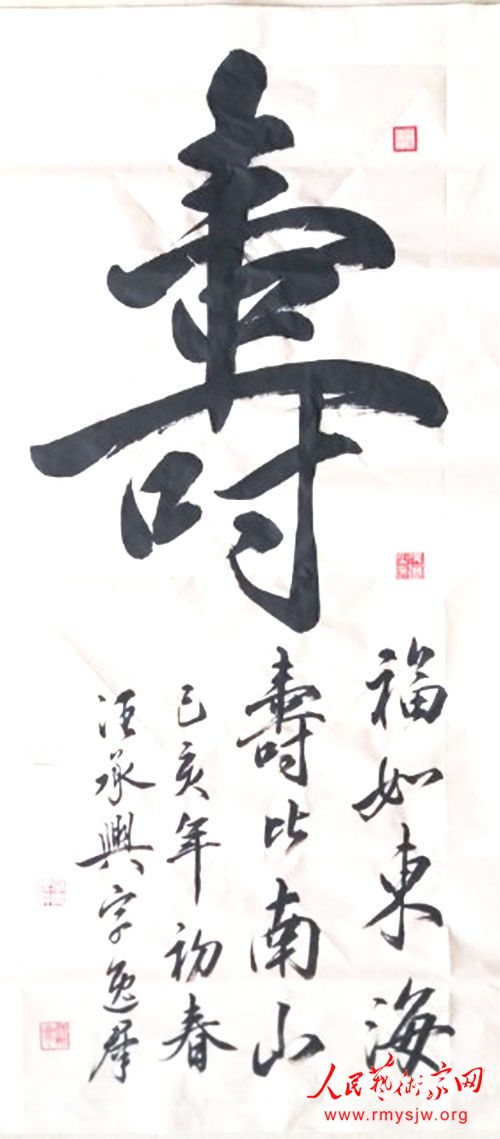 壽
福如東海
壽比南山
己亥年初春
汪承興字逸羣
人民藝術家网
www.rmysjw.org